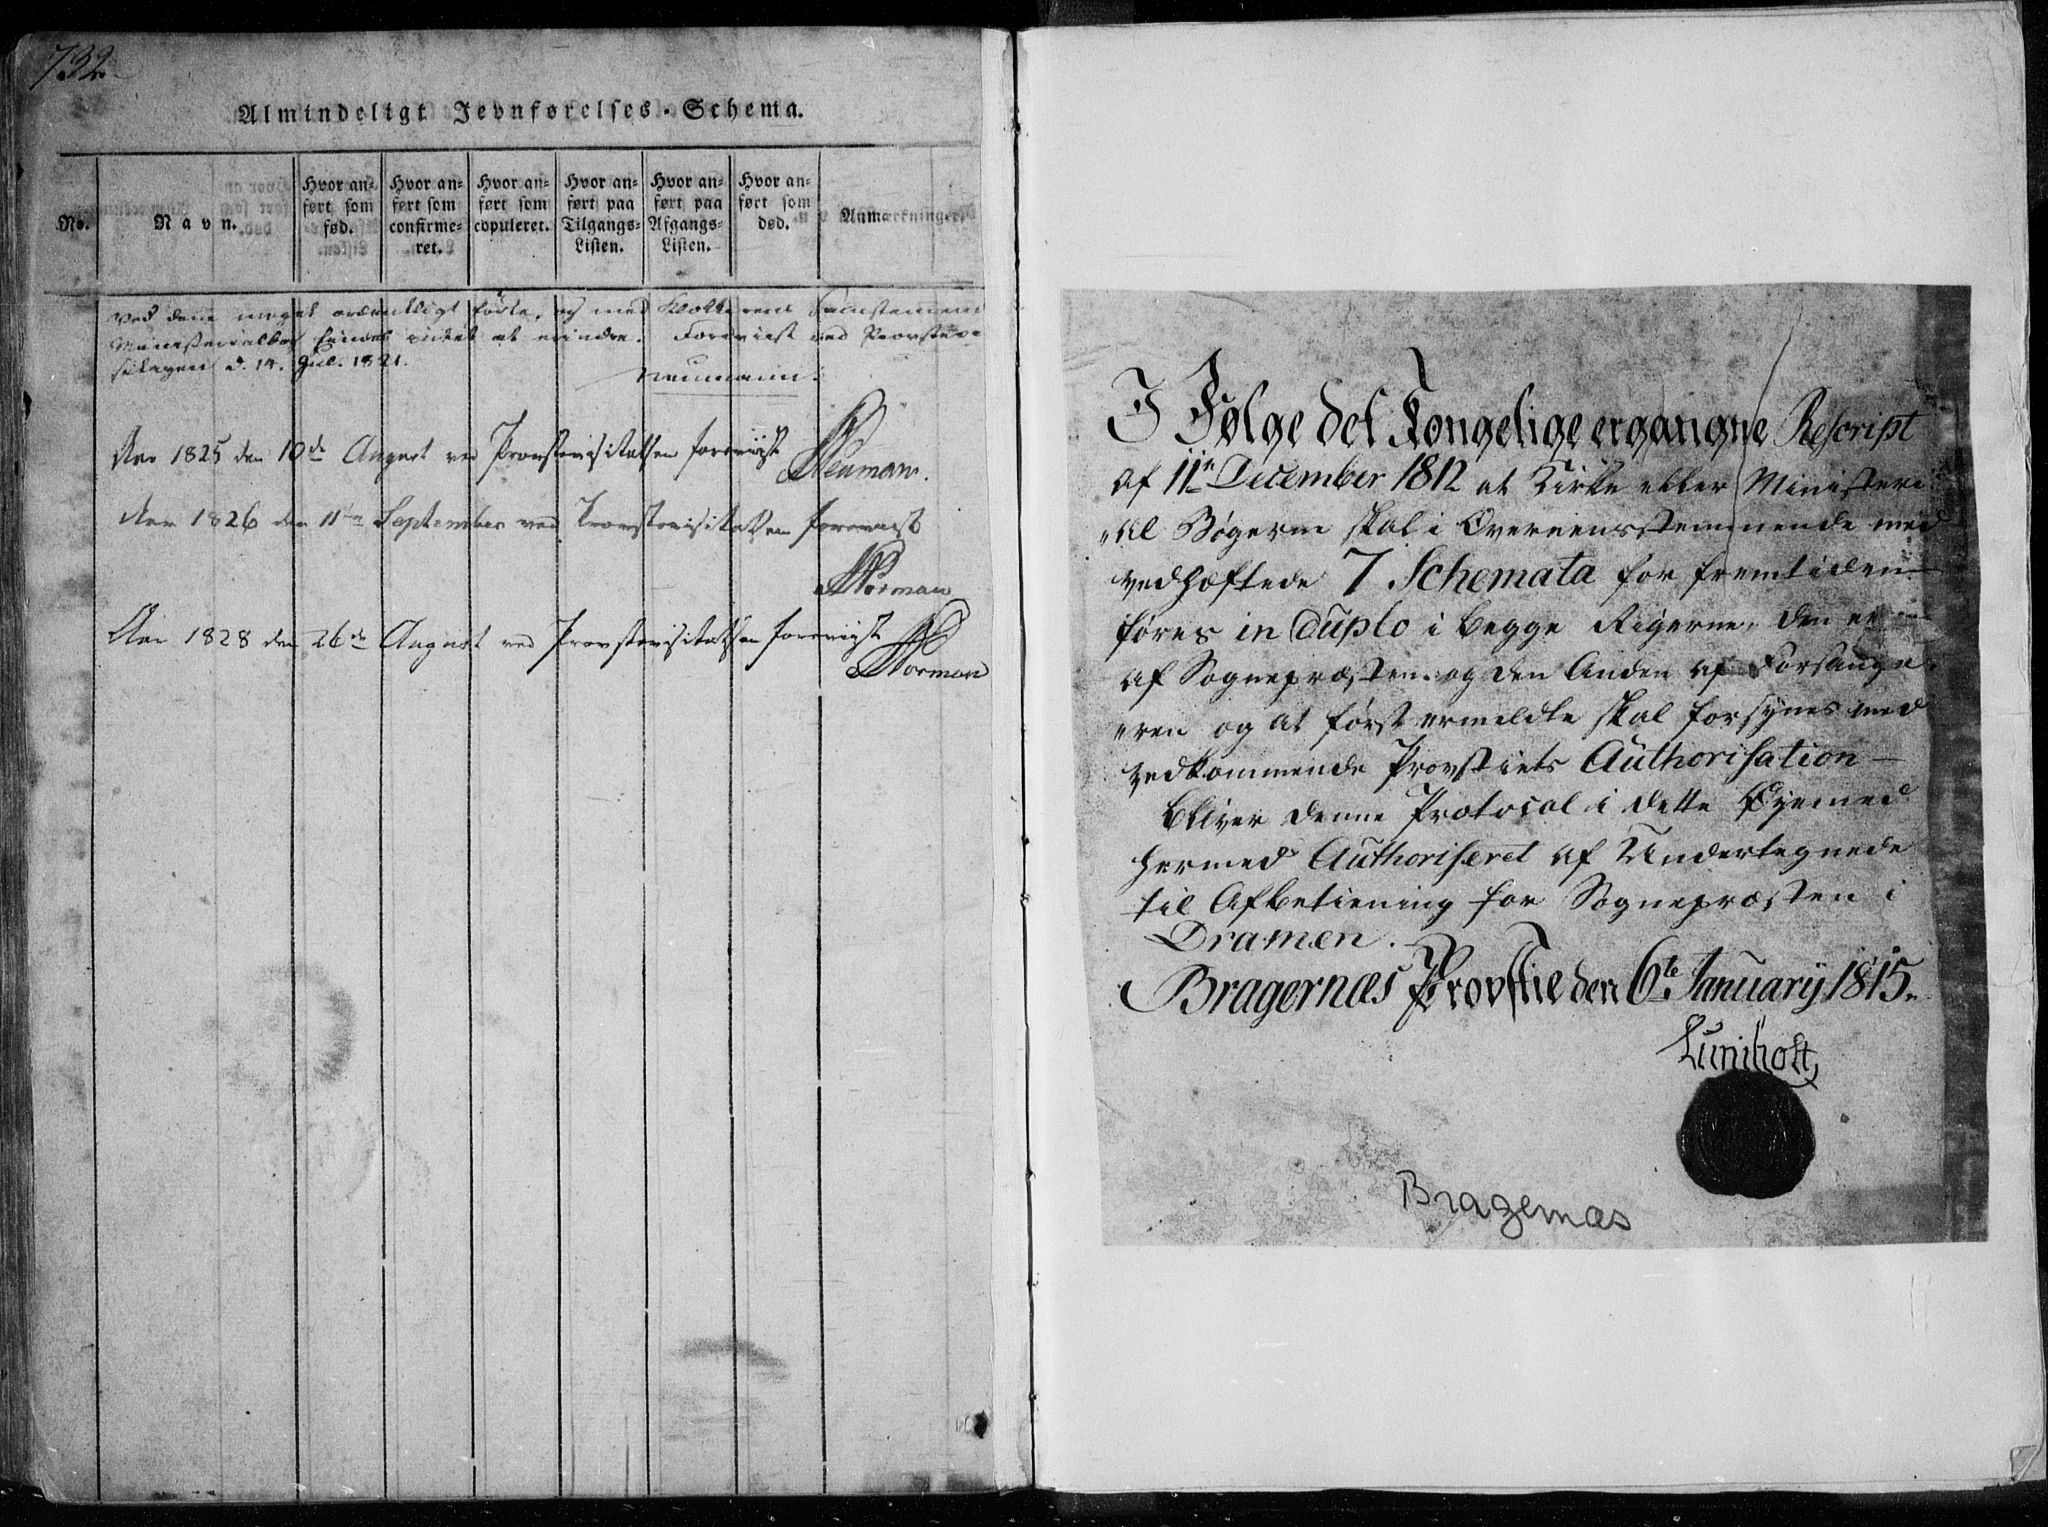 732
Almindeligt Jevnførelses-Schema.
No.
Navn.
Hvor an-
ført som
fød.
Hvor an-
ført som
confirme-
ret.
Hvor an-
ført som
copuleret.
Hvor an-
ført paa
Tilgangs-
Listen.
Hvor an-
ført paa
Afgangs-
Listen.
Hvor an-
ført som
død.
Anmærkninger.
Ved denne meget ordentligt førte, og med Klokkerens
Ministerialbog findes intet at erindre. Foreviist ved Provstevi-
sitazen d. 14. Jul. 1821.
Neumann.
Aar 1825 den 10de August ved Provstevisitatsen foreviist
Neuman.
Aar 1826 den 11te September ved Provstevisitatsen foreviist
Norman
Aar 1828 den 26de August ved Provstevisitatsen foreviist
Norman
I Følge det Kongelige ergangne Rescript
af 11te December 1812 at Kirke eller Ministeri-
"al Bøgerne skal i Overeensstemmende med
vedhæftede 7 Schemata for fremtiden
føres in duplo i begge Rigerne, den ene
af Sognepræsten og den Anden af Forsange-
"ren og at først ermeldte skal forsynes med
vedkommende Provstiets Authorisation —
bliver denne Protocol i dette Øyemed
hermed Authoriseret af Undertegnede
til Afbetiening for Sognepræsten i
Dramen.
Bragernæs Provstie den 6te January 1815.
Bragernæs